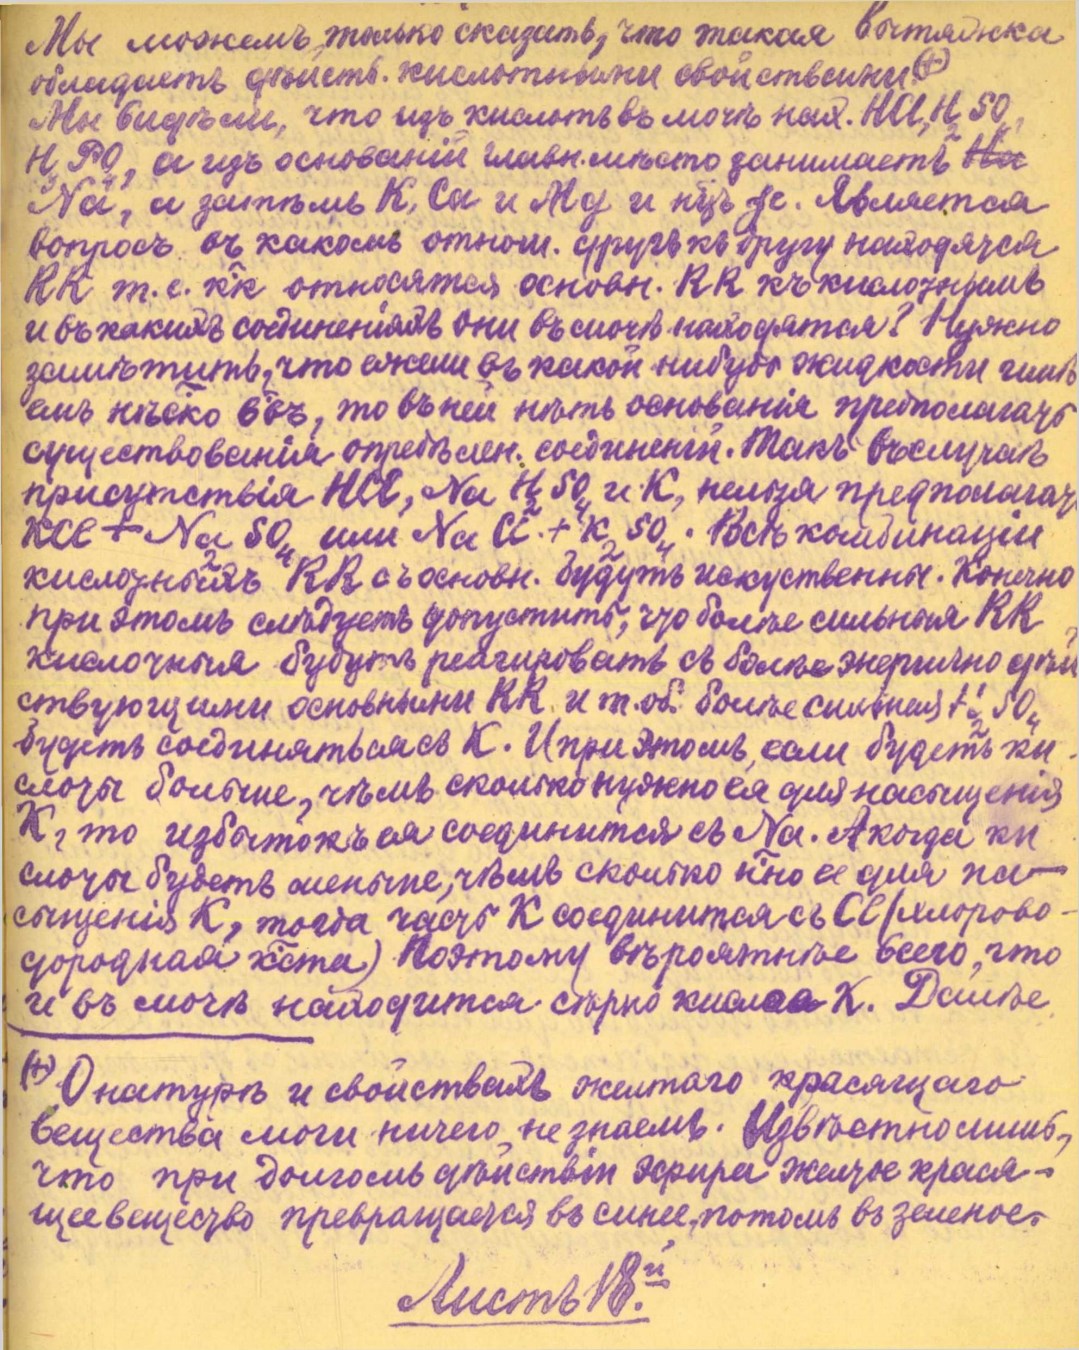 Мы можемъ только сказать, что такая вытяжка
обладаетъ дѣйств. кислотными свойствами (+)
Мы видѣли, что изъ кислотъ въ мочѣ нах. HCl, H2SO4,
H3PO4, а изъ основаній главн. мѣсто занимаетъ Na
Na, а затѣмъ K, Ca и Mg и нѣц. Fe. Является
вопросъ въ какомъ отнош. другъ къ другу находятся
RR т.е. к̂к относятся основн. RR къ кислотнымъ
и въ какихъ соединеніяхъ они въ мочѣ находятся? Нужно
замѣтить, что ежели въ какой нибудь жидкости имѣ
емъ нѣско вдъ, то въ ней нѣтъ основанія предполагать
существованія опредѣлен. соединеній. Такъ въ случаѣ
присутствія HCl, Na H2SO4 и K, нельзя предполагать
KCl + Na2SO4 или NaCl + K2SO4. Всѣ комбинаціи
кислотныхъ RR съ основн. будутъ искуственны. Конечно
при этомъ слѣдуетъ допустить, что болѣе сильныя RR
кислотныя будутъ реагировать съ болѣе энергично дѣй
ствующими основными RR и т.об. болѣе сильная H2SO4
будетъ соединяться съ K. И при этомъ, если будетъ ки-
слоты больше, чѣмъ сколько нужно ея для насыщенія
K, то избытокъ ея соединится съ Na. А когда ки
слоты будетъ меньше, чѣмъ сколько нно ее для на-
сыщенія K, тогда часть K соединится съ Cl (хлорово-
дородная кста) Поэтому вѣроятнѣе всего, что
и въ мочѣ находится сѣрно кислая K. Далѣе
(+) О натурѣ и свойствахъ желтаго красящаго
вещества мочи ничего не знаемъ. Извѣстно лишь,
что при долгомъ дѣйствіи эфира желтое крася-
щее вещество превращается въ синее, потомъ въ зеленое.
Листъ 18.й